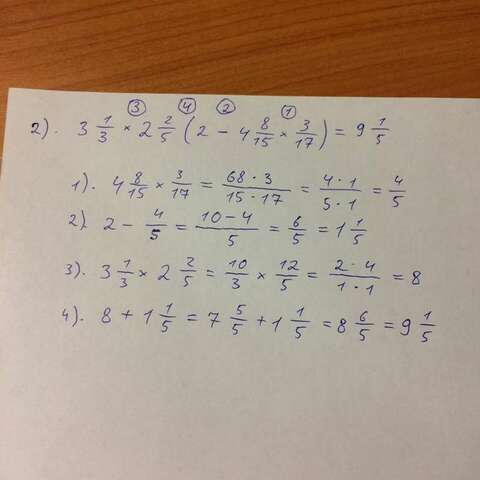 ③ ④ ② ①
2). 3 1/3 × 2 2/5 (2 − 4 8/15 × 3/17) = 9 1/5
1). 4 8/15 × 3/17 = 68·3/15·17 = 4·1/5·1 = 4/5
2). 2 − 4/5 = 10−4/5 = 6/5 = 1 1/5
3). 3 1/3 × 2 2/5 = 10/3 × 12/5 = 2·4/1·1 = 8
4). 8 + 1 1/5 = 7 5/5 + 1 1/5 = 8 6/5 = 9 1/5